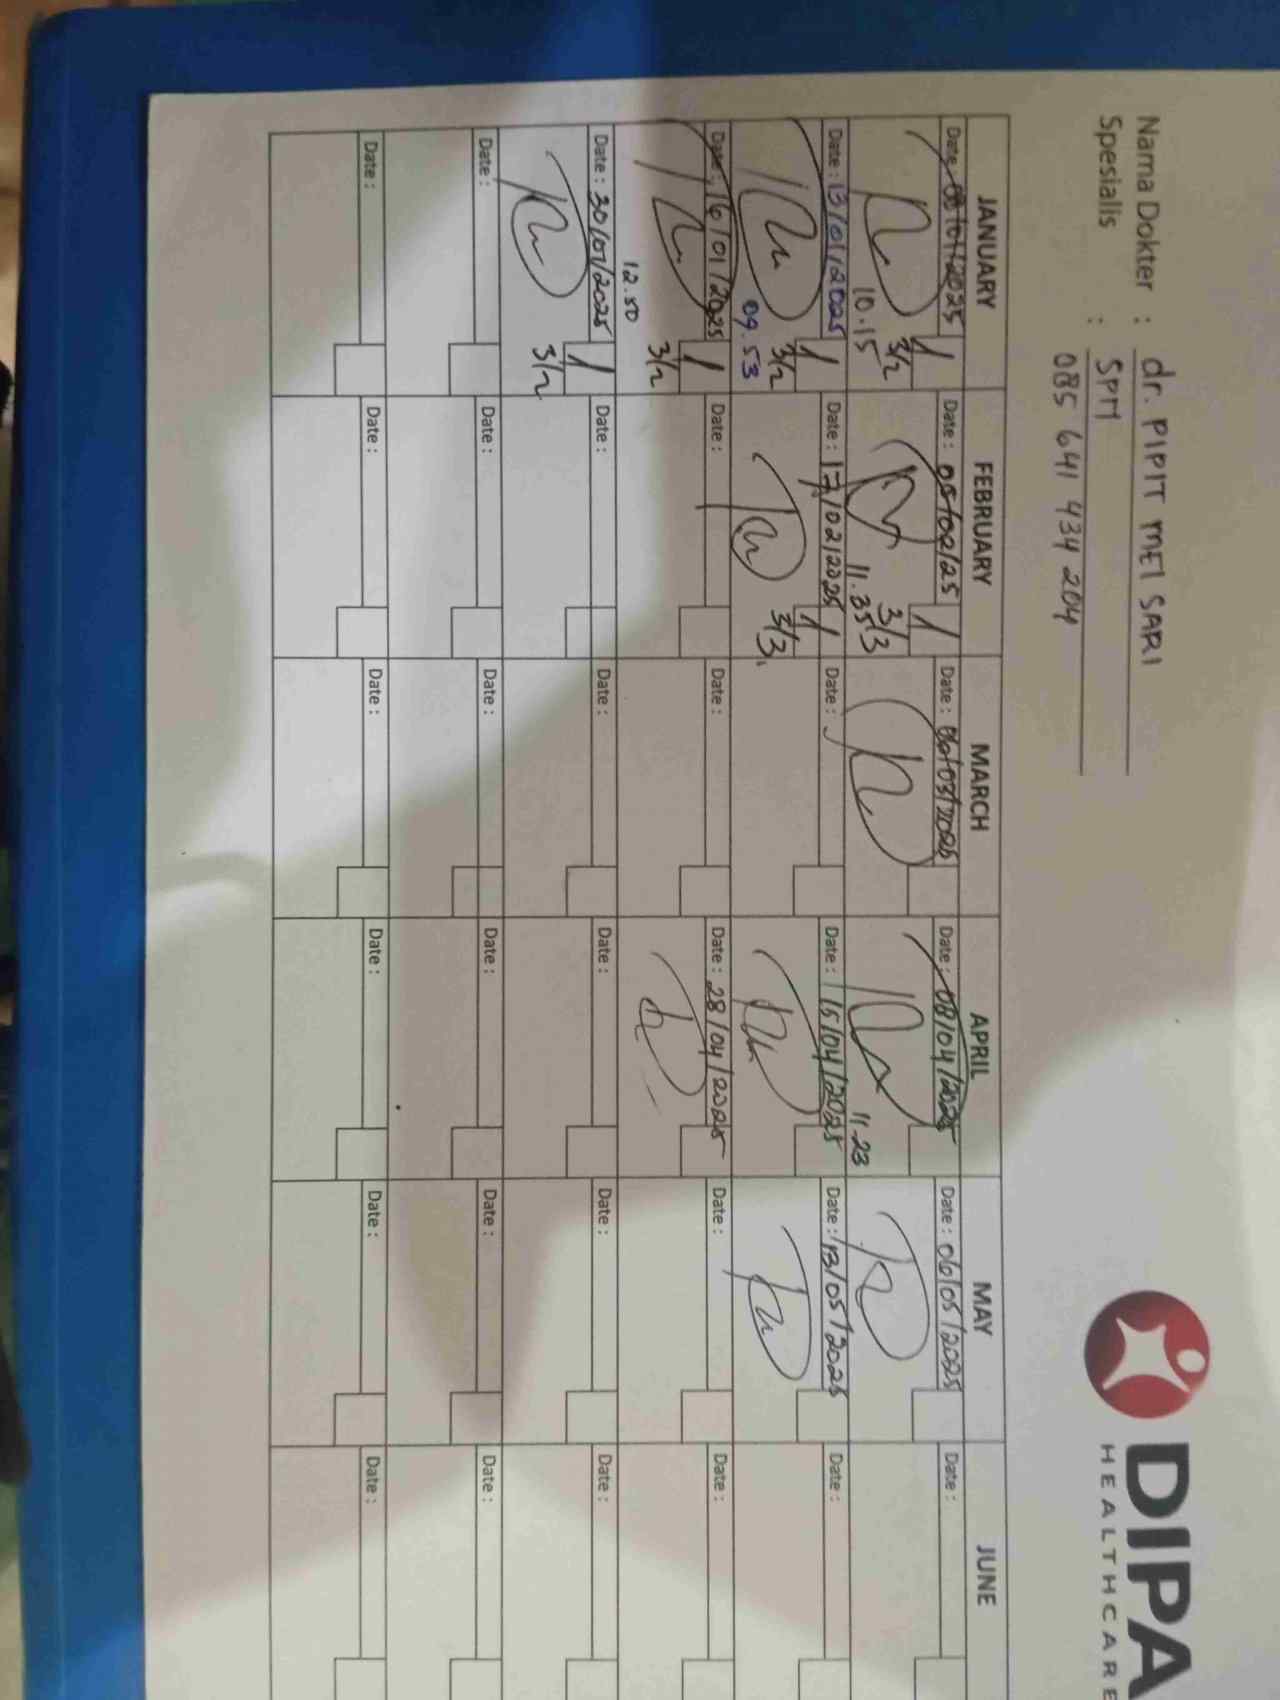 DIPA
HEALTHCARE
Nama Dokter : dr. PIPIT MEI SARI
Spesialis : SPM
085 641 434 204
JANUARY FEBRUARY MARCH APRIL MAY JUNE
Date : 08/01/2025 1 Date : 05/02/25 1 Date : 06/03/2025 Date : 08/04/2025 Date : 06/05/2025 Date :
3/2 3/3
10.15 11.35 11.23
Date : 13/01/2025 1 Date : 17/02/2025 1 Date : Date : 15/04/2025 Date : 13/05/2025 Date :
3/2 3/3
09.53
Date : 16/01/2025 1 Date : Date : Date : 28/04/2025 Date : Date :
3/2
12.50
Date : 30/01/2025 1 Date : Date : Date : Date : Date :
3/2
Date : Date : Date : Date : Date : Date :
Date : Date : Date : Date : Date : Date :